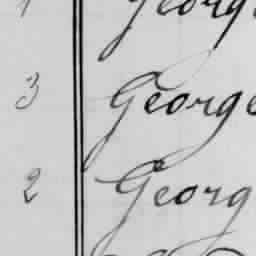 George
3 George
2 Georg